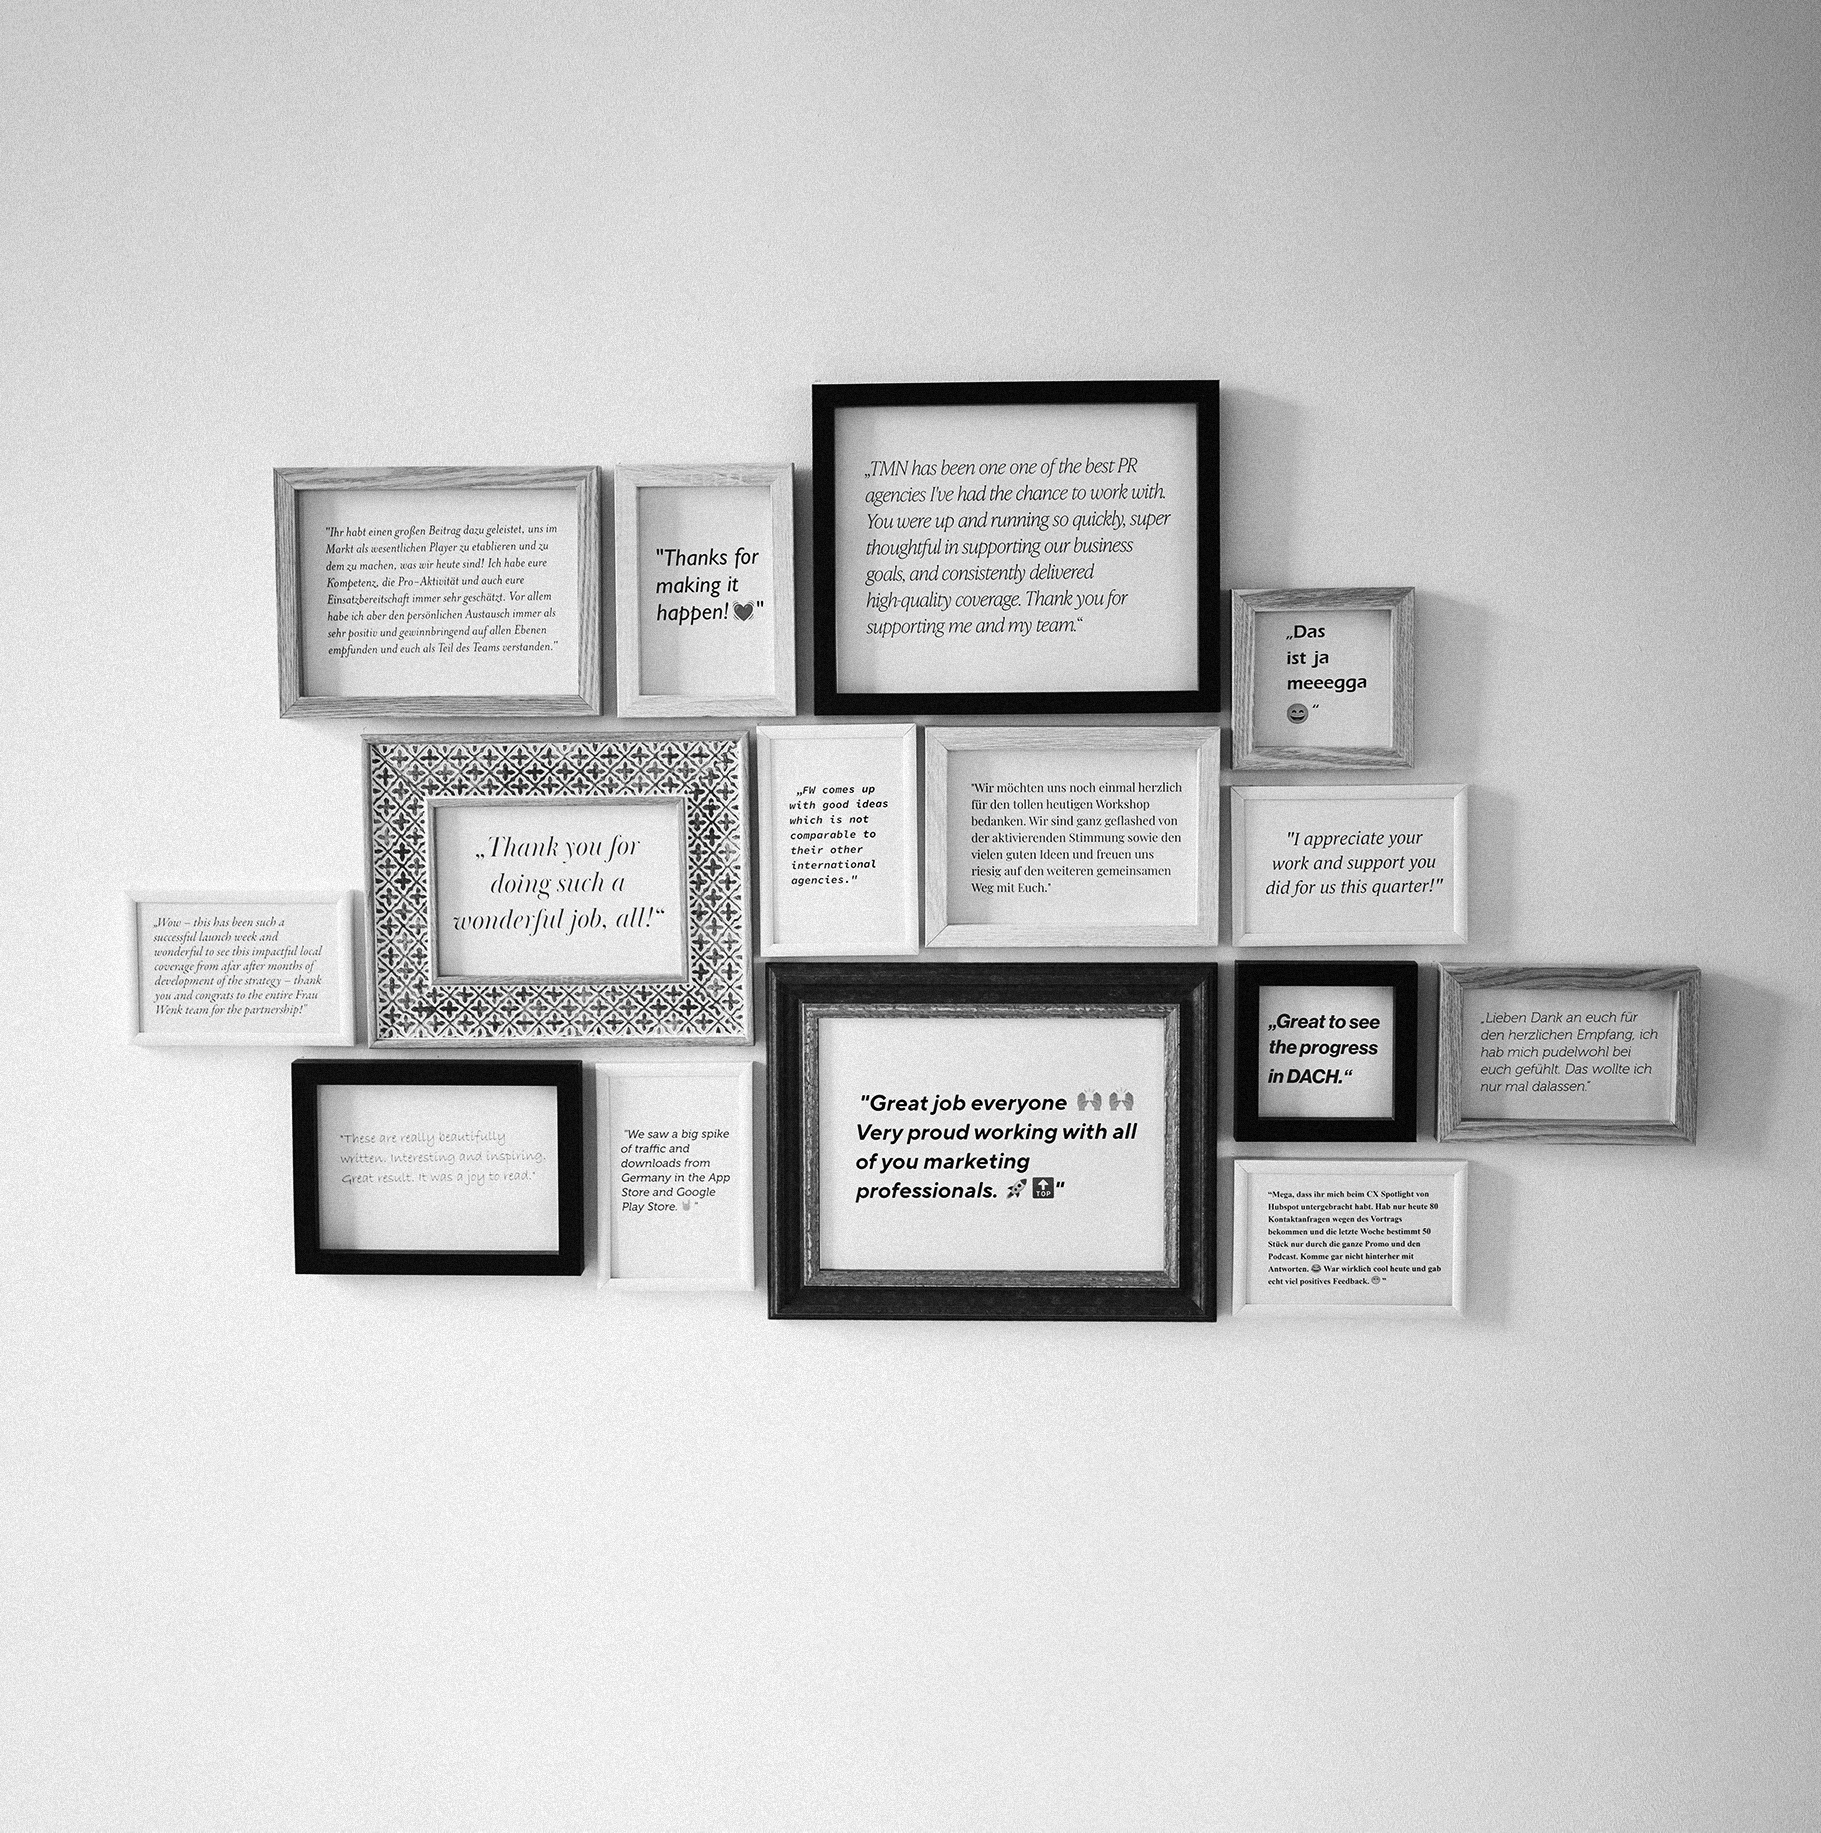 "Ihr habt einen großen Beitrag dazu geleistet, uns im
Markt als wesentlichen Player zu etablieren und zu
dem zu machen, was wir heute sind! Ich habe eure
Kompetenz, die Pro-Aktivität und auch eure
Einsatzbereitschaft immer sehr geschätzt. Vor allem
habe ich aber den persönlichen Austausch immer als
sehr positiv und gewinnbringend auf allen Ebenen
empfunden und euch als Teil des Teams verstanden."
"Thanks for
making it
happen! 💓"
„TMN has been one one of the best PR
agencies I've had the chance to work with.
You were up and running so quickly, super
thoughtful in supporting our business
goals, and consistently delivered
high-quality coverage. Thank you for
supporting me and my team.“
„Das
ist ja
meeegga
😄 “
„Thank you for
doing such a
wonderful job, all!“
„FW comes up
with good ideas
which is not
comparable to
their other
international
agencies."
"Wir möchten uns noch einmal herzlich
für den tollen heutigen Workshop
bedanken. Wir sind ganz geflashed von
der aktivierenden Stimmung sowie den
vielen guten Ideen und freuen uns
riesig auf den weiteren gemeinsamen
Weg mit Euch."
"I appreciate your
work and support you
did for us this quarter!"
„Wow – this has been such a
successful launch week and
wonderful to see this impactful local
coverage from afar after months of
development of the strategy – thank
you and congrats to the entire Frau
Wenk team for the partnership!"
"These are really beautifully
written. Interesting and inspiring.
Great result. It was a joy to read."
"We saw a big spike
of traffic and
downloads from
Germany in the App
Store and Google
Play Store. 🤘 "
"Great job everyone 🙌 🙌
Very proud working with all
of you marketing
professionals. 🚀 🔝"
„Great to see
the progress
in DACH.“
„Lieben Dank an euch für
den herzlichen Empfang, ich
hab mich pudelwohl bei
euch gefühlt. Das wollte ich
nur mal dalassen."
“Mega, dass ihr mich beim CX Spotlight von
Hubspot untergebracht habt. Hab nur heute 80
Kontaktanfragen wegen des Vortrags
bekommen und die letzte Woche bestimmt 50
Stück nur durch die ganze Promo und den
Podcast. Komme gar nicht hinterher mit
Antworten. 😂 War wirklich cool heute und gab
echt viel positives Feedback. 😁 ”